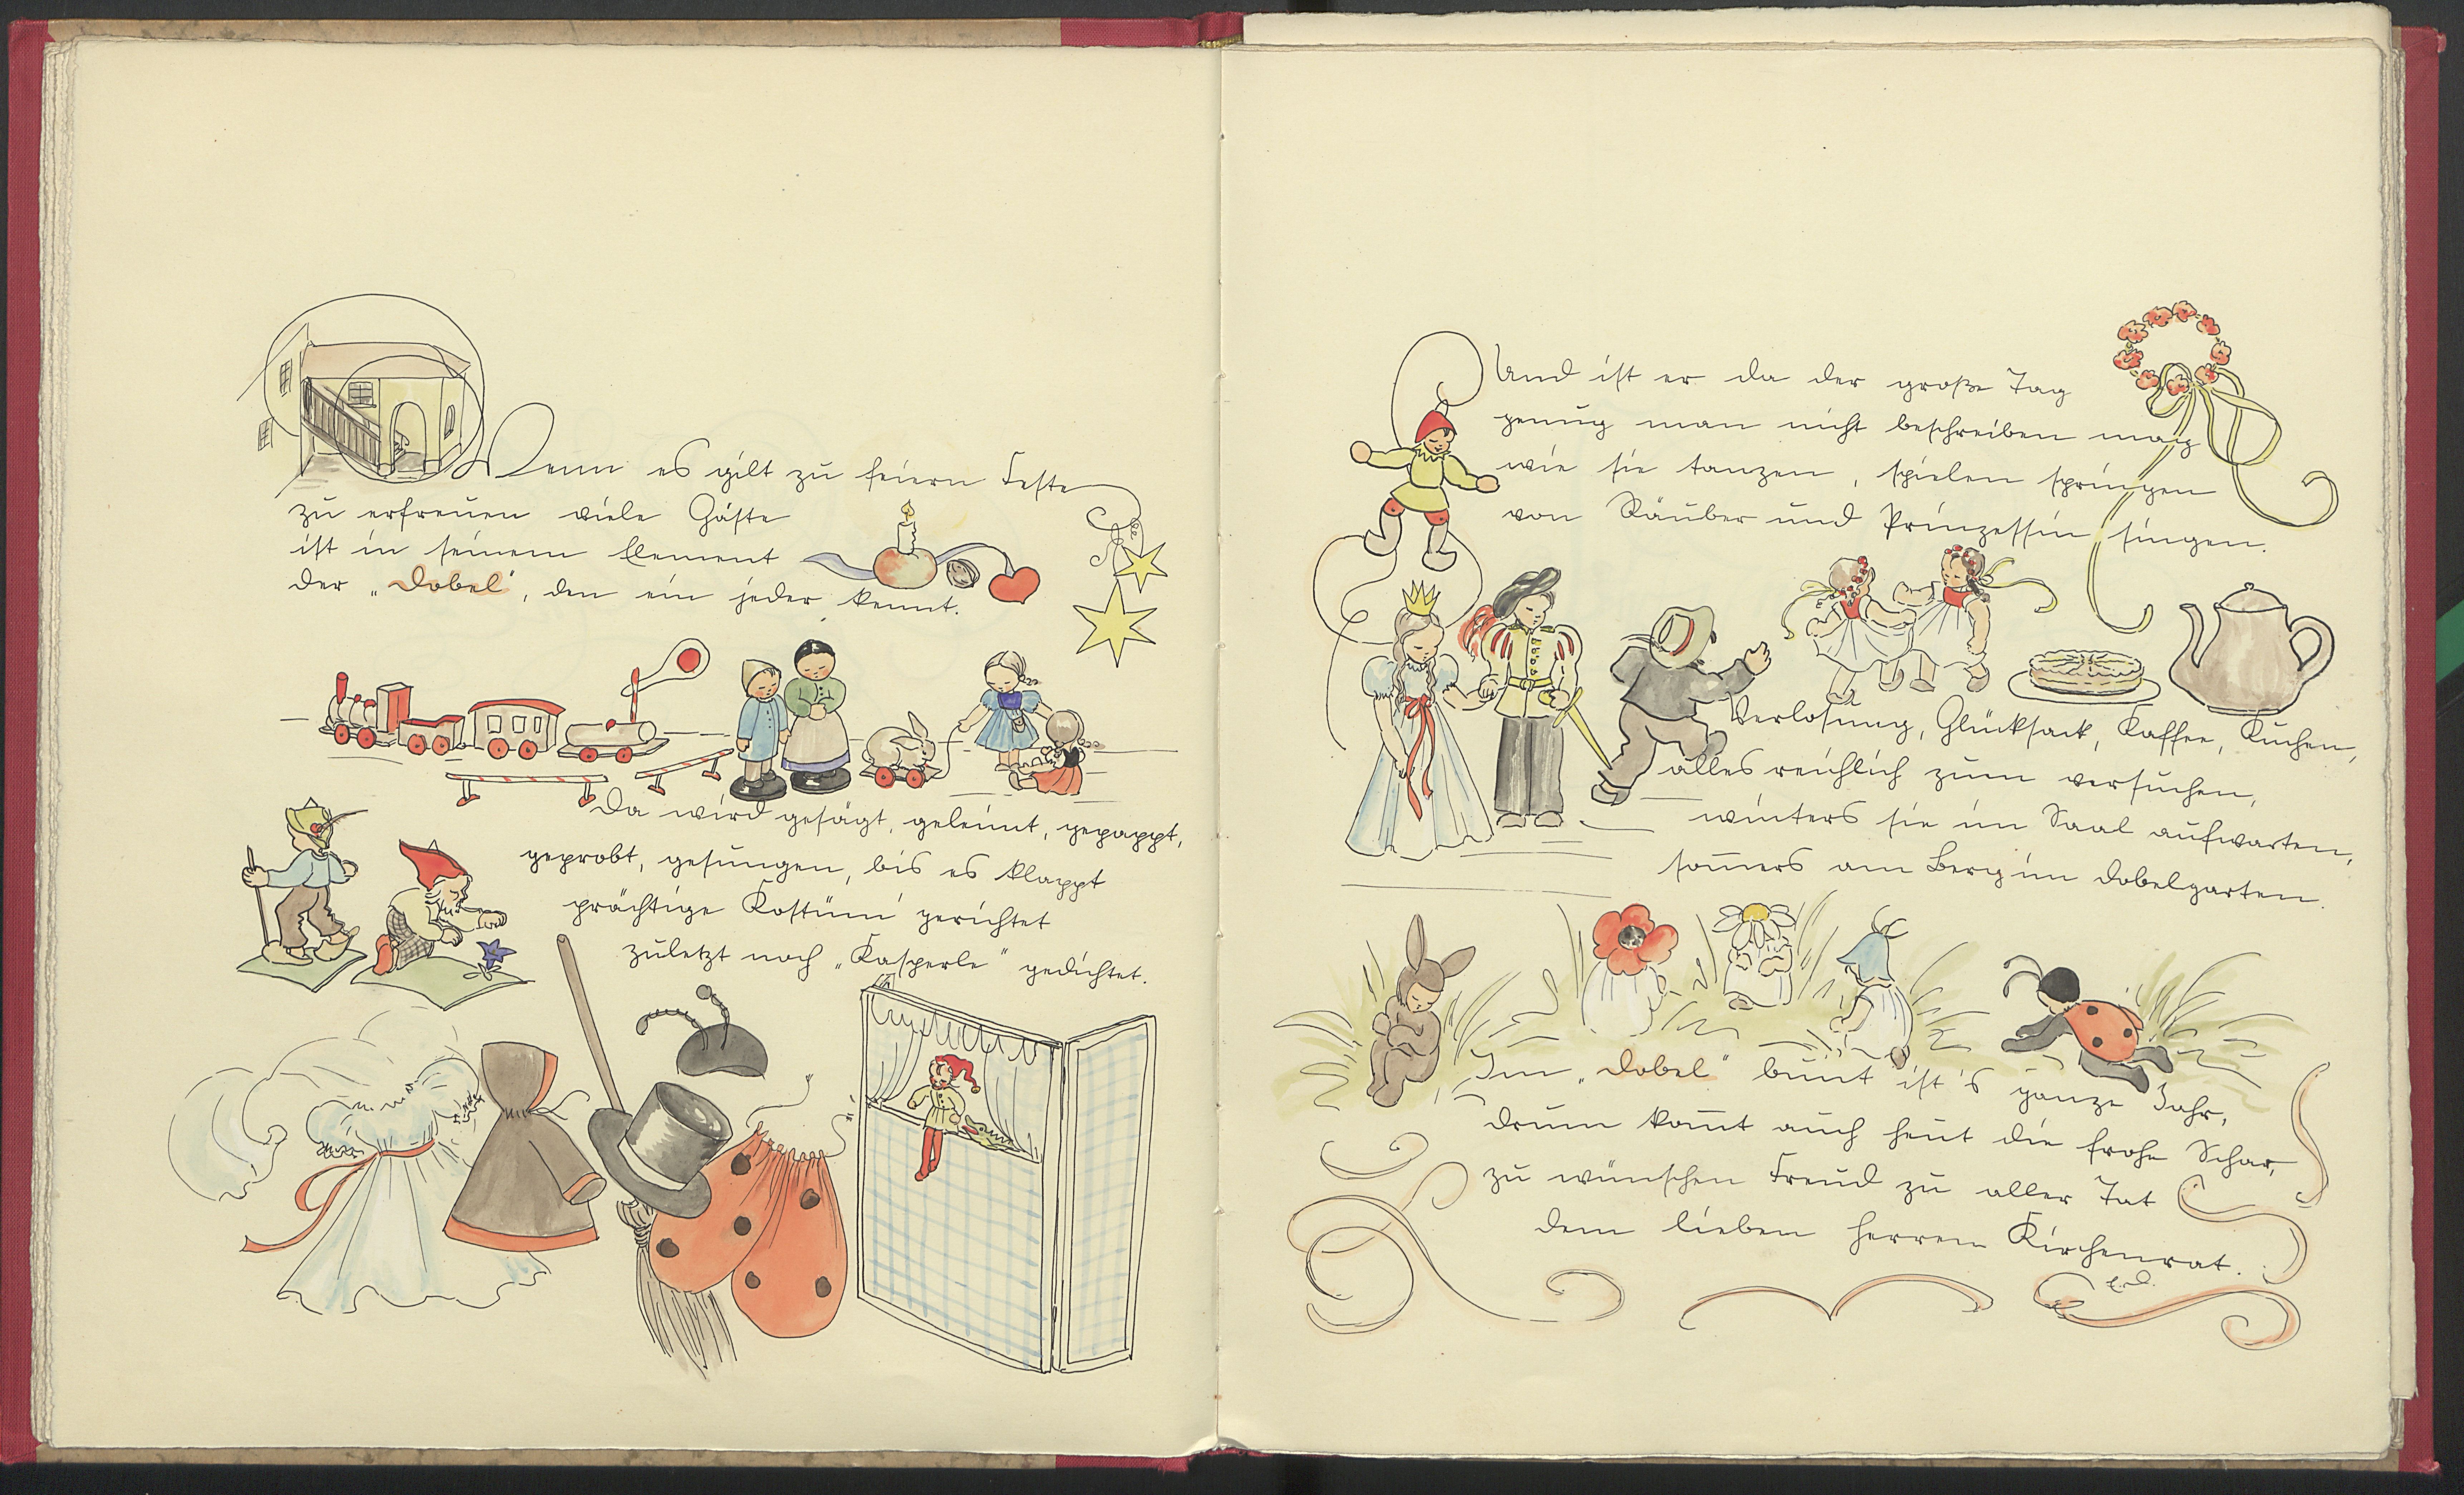 Wenn es gilt zu feiern Feste
zu erfreuen viele Gäste
ist in seinem Element
der „Dobel", den ein jeder kennt.
Da wird gesägt, geleimt, gepappt,
geprobt, gesungen, bis es klappt
prächtige Kostüm' gerichtet
zuletzt noch „Kasperle" gedichtet.
Und ist er da der große Tag
genug man nicht beschreiben mag
wie sie tanzen, spielen springen
von Räuber und Prinzessin singen.
Verlosung, Glücksack, Kaffee, Kuchen,
alles reichlich zum versuchen,
winters sie im Saal aufwarten,
som̄ers am Berg im Dobelgarten.
Im „Dobel" bunt ist's ganze Jahr,
drum kom̄t auch heut die frohe Schar,
zu wünschen Freud zu aller Tat
dem lieben Herren Kirchenrat.
E.D.